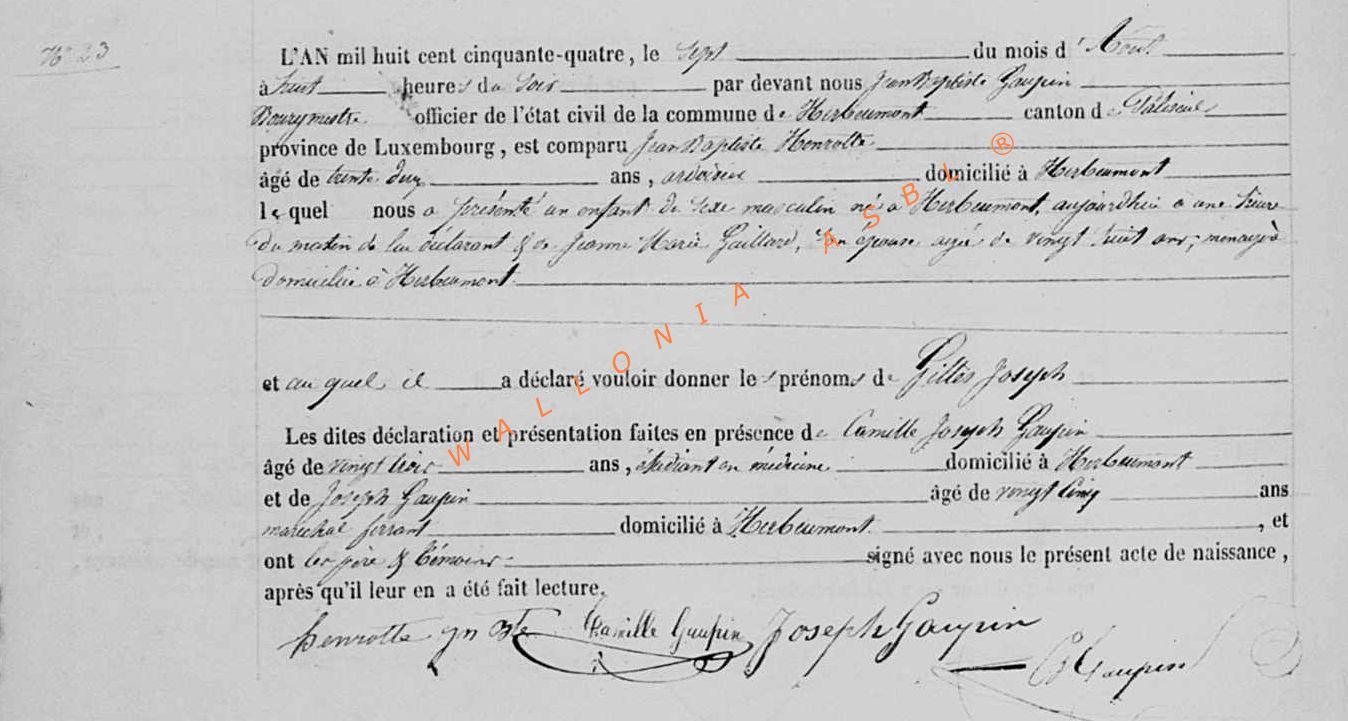 N° 23
L'AN mil huit cent cinquante-quatre, le sept du mois d'Août
à huit heures du soir par devant nous Jean Baptiste Gaupin
Bourgmestre officier de l'état civil de la commune de Herbeumont canton de Paliseul
province de Luxembourg, est comparu Jean Baptiste Henrotte
âgé de trente deux ans, ardoisier domicilié à Herbeumont
lequel nous a présenté un enfant de sexe masculin né à Herbeumont, aujourdhui à une heure
du matin de lui déclarant & de Jeanne Marie Gaillard, son épouse agée de vingt huit ans, menagère
domiciliée à Herbeumont.
et au quel il a déclaré vouloir donner les prénoms de Gilles Joseph
Les dites déclaration et présentation faites en présence de Camille Joseph Gaupin
âgé de vingt trois ans, étudiant en médecine domicilié à Herbeumont
et de Joseph Gaupin âgé de vingt cinq ans
marechal ferrant domicilié à Herbeumont, et
ont les père & témoins signé avec nous le présent acte de naissance,
après qu'il leur en a été fait lecture.
henrotte jn Bte Camille Gaupin Joseph Gaupin
Gaupin
WALLONIA ASBL ®